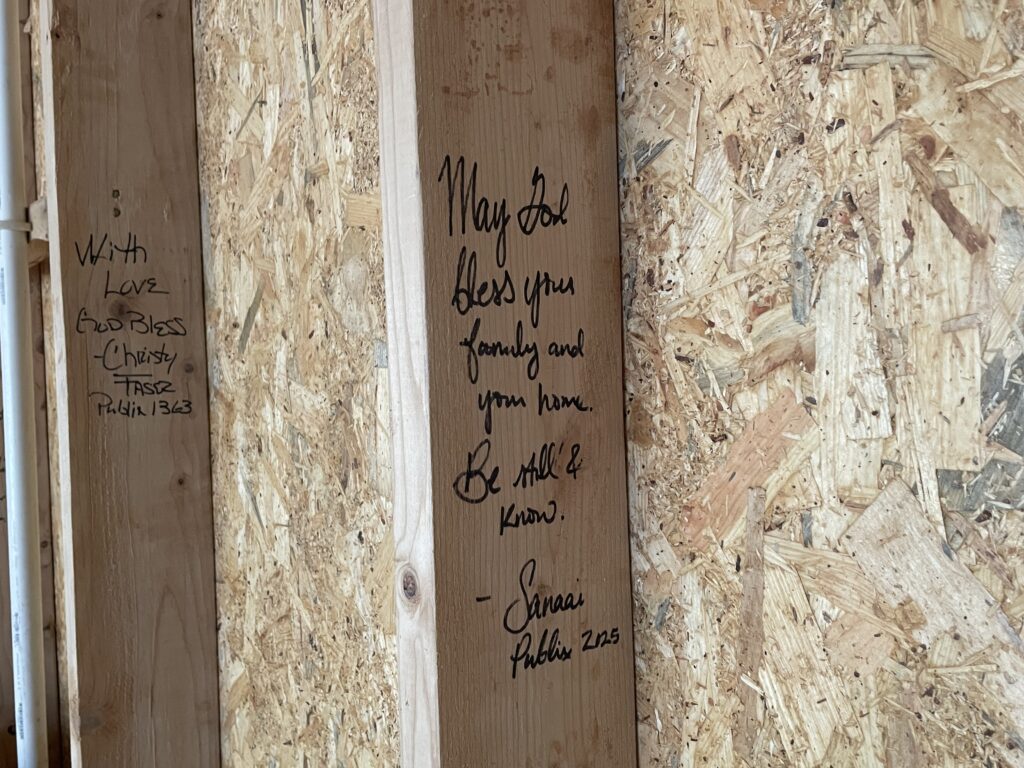 With
Love
God Bless
-Christy
Publix 1363
May God
bless your
family and
your home.
Be still &
Know.
- Sanaai
Publix 2125